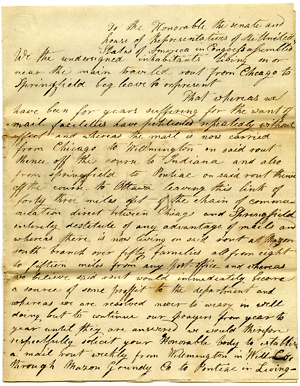 To the Honorable the senate and
house of Representatives of the United
States of America in Congress assembled
We the undersigned inhabitants living on or
near the main traveled rout from Chicago to
Springfield beg leave to represent
That whereas we
have been for years suffering for the want of
mail facilities have petitioned repeatedly without
effect and whereas the mail is now carried
from Chicago to Wilmington on said rout
thence off the course to Indiana and also
from Springfield to Pontiac on said rout thence
off the course to Ottawa leaving this link of
forty three miles out of the chain of commu
nication direct between Chicago and Springfield
entirely destitute of any advantage of mails and
whereas there is now living on said rout at Mazon
south branch over fifty families all from eight
to fifteen miles from any post office and whereas
we believe said rout would immediately become
a source of some proffit to the department and
whereas we are resolved never to weary in well
doing, but to continue our prayers from year to
year until they are answered we would therefore
respectfully solicit your Honorable body to establish
a mail rout weekly from Wilmington in Will Co
through Mazon Groundy Co to Pontiac in Living-